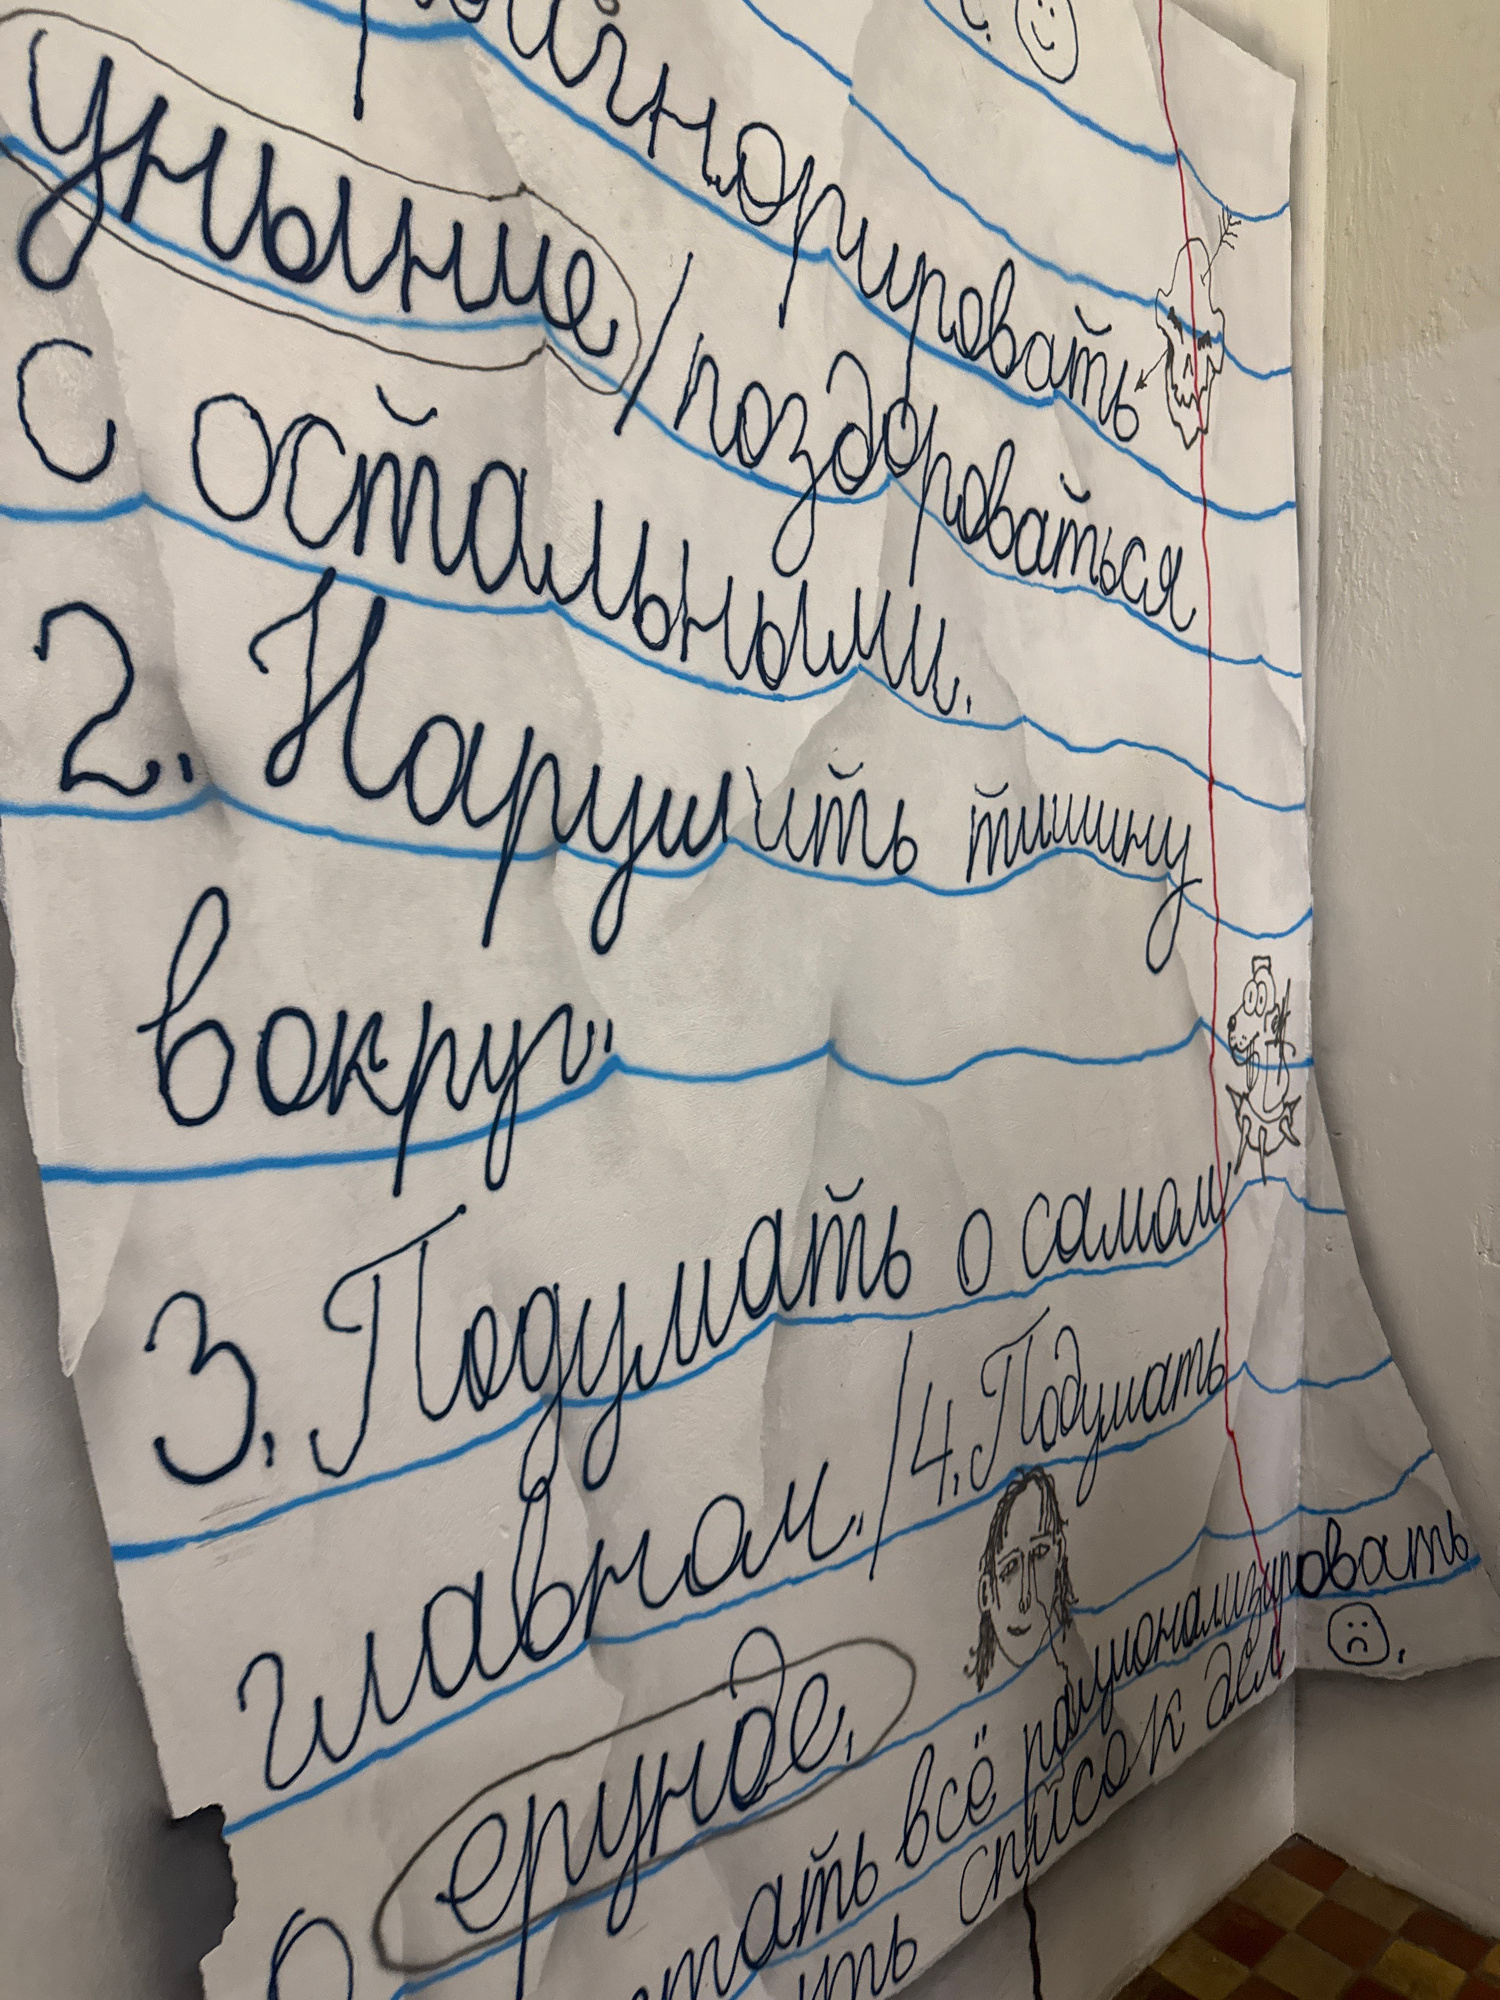 игнорировать
уныние / поздороваться
с остальными.
2. Нарушить тишину
вокруг.
3. Подумать о самом
главном. / 4. Подумать
о ерунде.
всё рационализировать
список дел